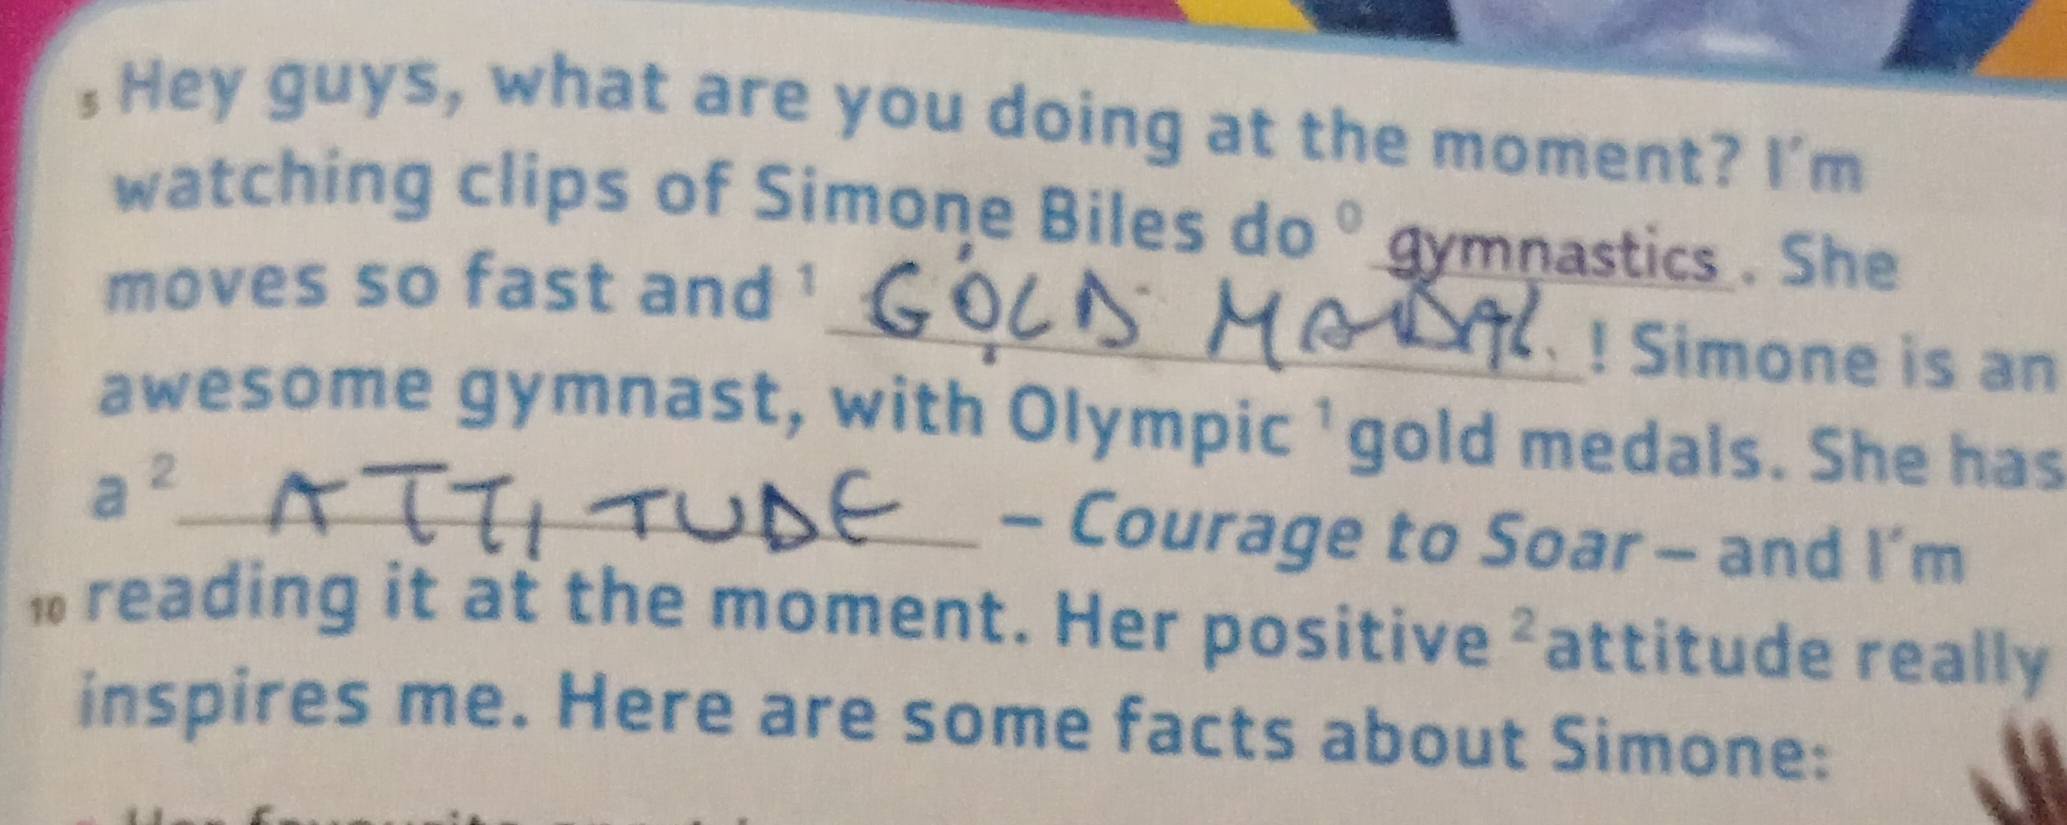 5 Hey guys, what are you doing at the moment? I'm
watching clips of Simone Biles do 0 gymnastics. She
moves so fast and 1 GOLD MADAL. ! Simone is an
awesome gymnast, with Olympic 1 gold medals. She has
a 2 ATTITUDE – Courage to Soar – and I'm
10 reading it at the moment. Her positive 2 attitude really
inspires me. Here are some facts about Simone: